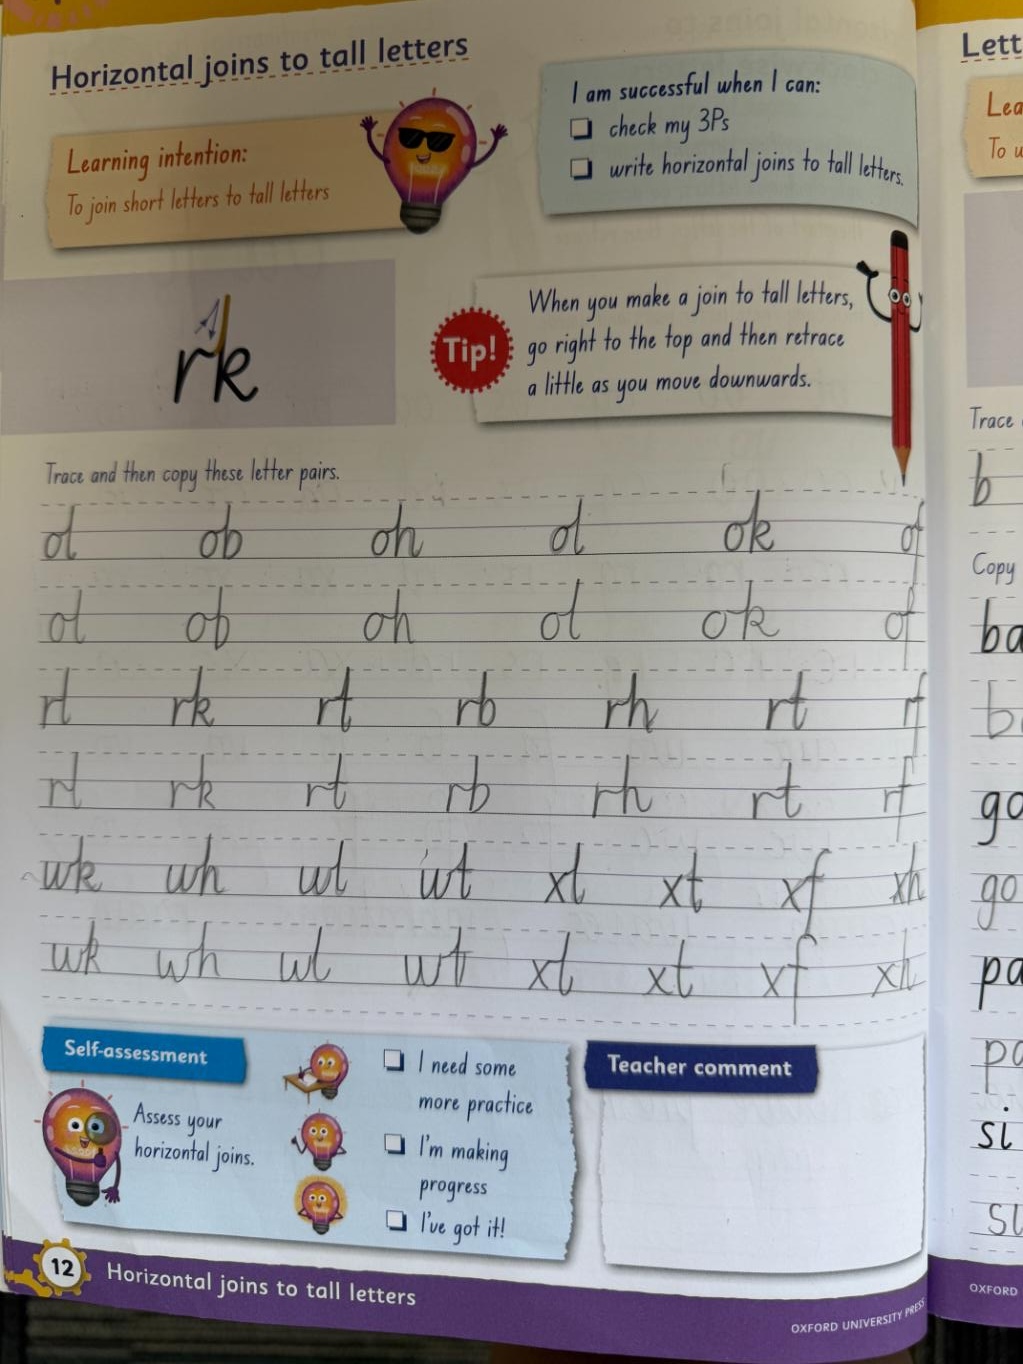 Horizontal joins to tall letters
Learning intention:
To join short letters to tall letters
I am successful when I can:
check my 3Ps
write horizontal joins to tall letters.
rk
Tip!
When you make a join to tall letters,
go right to the top and then retrace
a little as you move downwards.
Trace and then copy these letter pairs.
ol ob oh ol ok of
ol ob oh ol ok of
rl rk rt rb rh rt rf
rl rk rt rb rh rt rf
wk wh wl wt xl xt xf xh
wk wh wl wt xl xt xf xh
Self-assessment
Assess your
horizontal joins.
I need some
more practice
I'm making
progress
I've got it!
Teacher comment
12 Horizontal joins to tall letters
OXFORD UNIVERSITY PRESS
Trace
b
Copy
go
go
si
OXFORD